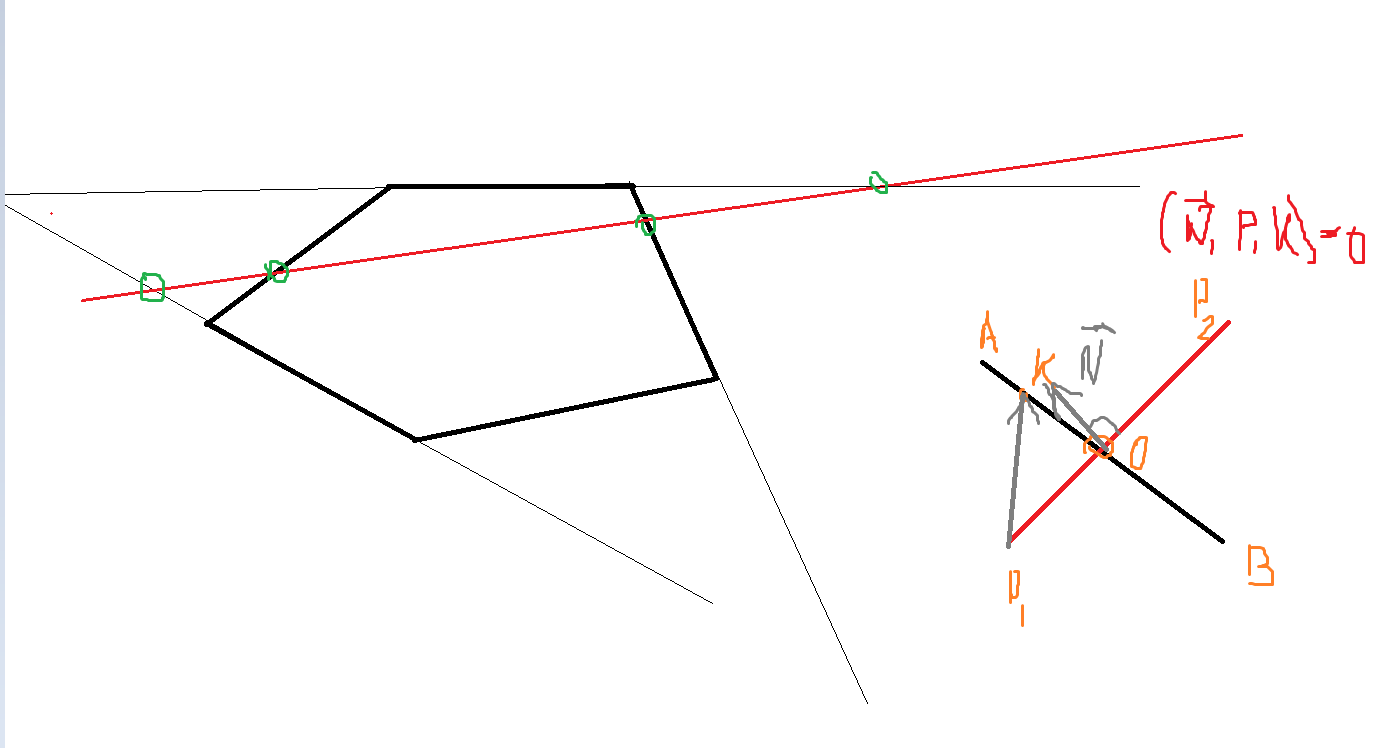 (N, P, K) = 0
P2
A
K
N
O
B
P1